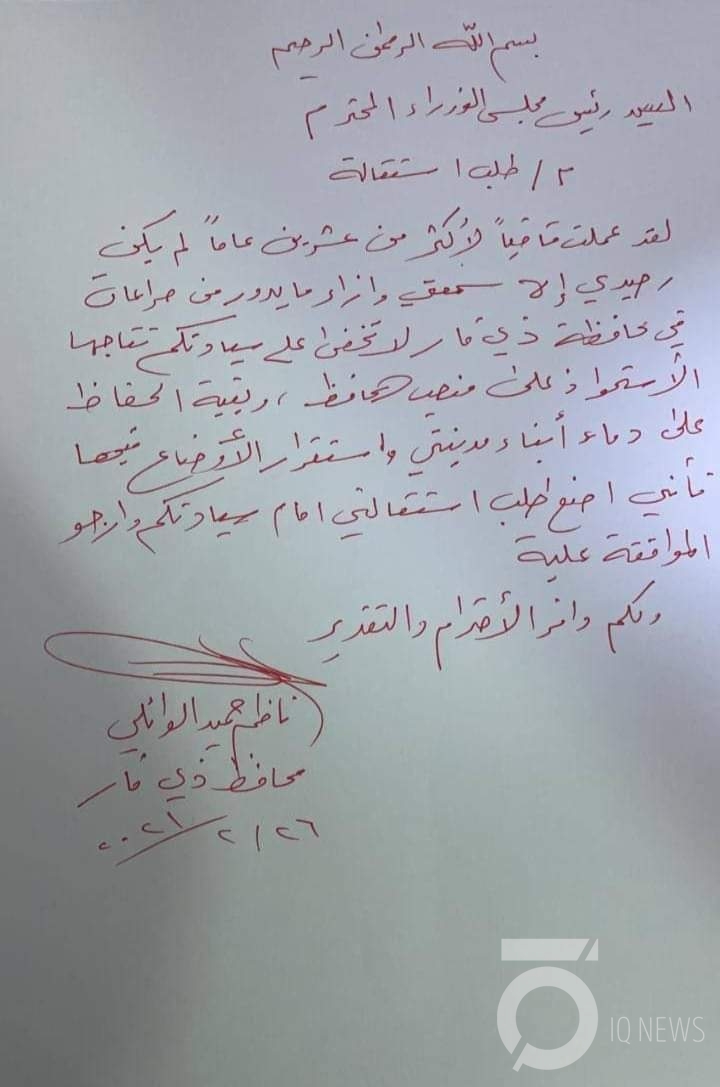 بسم الله الرحمن الرحيم
السيد رئيس مجلس الوزراء المحترم
م / طلب استقالة
لقد عملت قاضياً لأكثر من عشرين عاماً لم يكن
رصيدي إلا سمعتي وازاء ما يدور من صراعات
في محافظة ذي قار لا تخفى على سيادتكم نتاجها
الأستحواذ على منصب المحافظ، وبغية الحفاظ
على دماء أبناء مدينتي واستقرار الأوضاع فيها
فأني اضع طلب استقالتي امام سيادتكم وارجو
الموافقة علية
ولكم وافر الأحترام والتقدير
ناظم حميد الوائلي
محافظ ذي قار
٢٠٢١/٢/٢٦
IQ NEWS